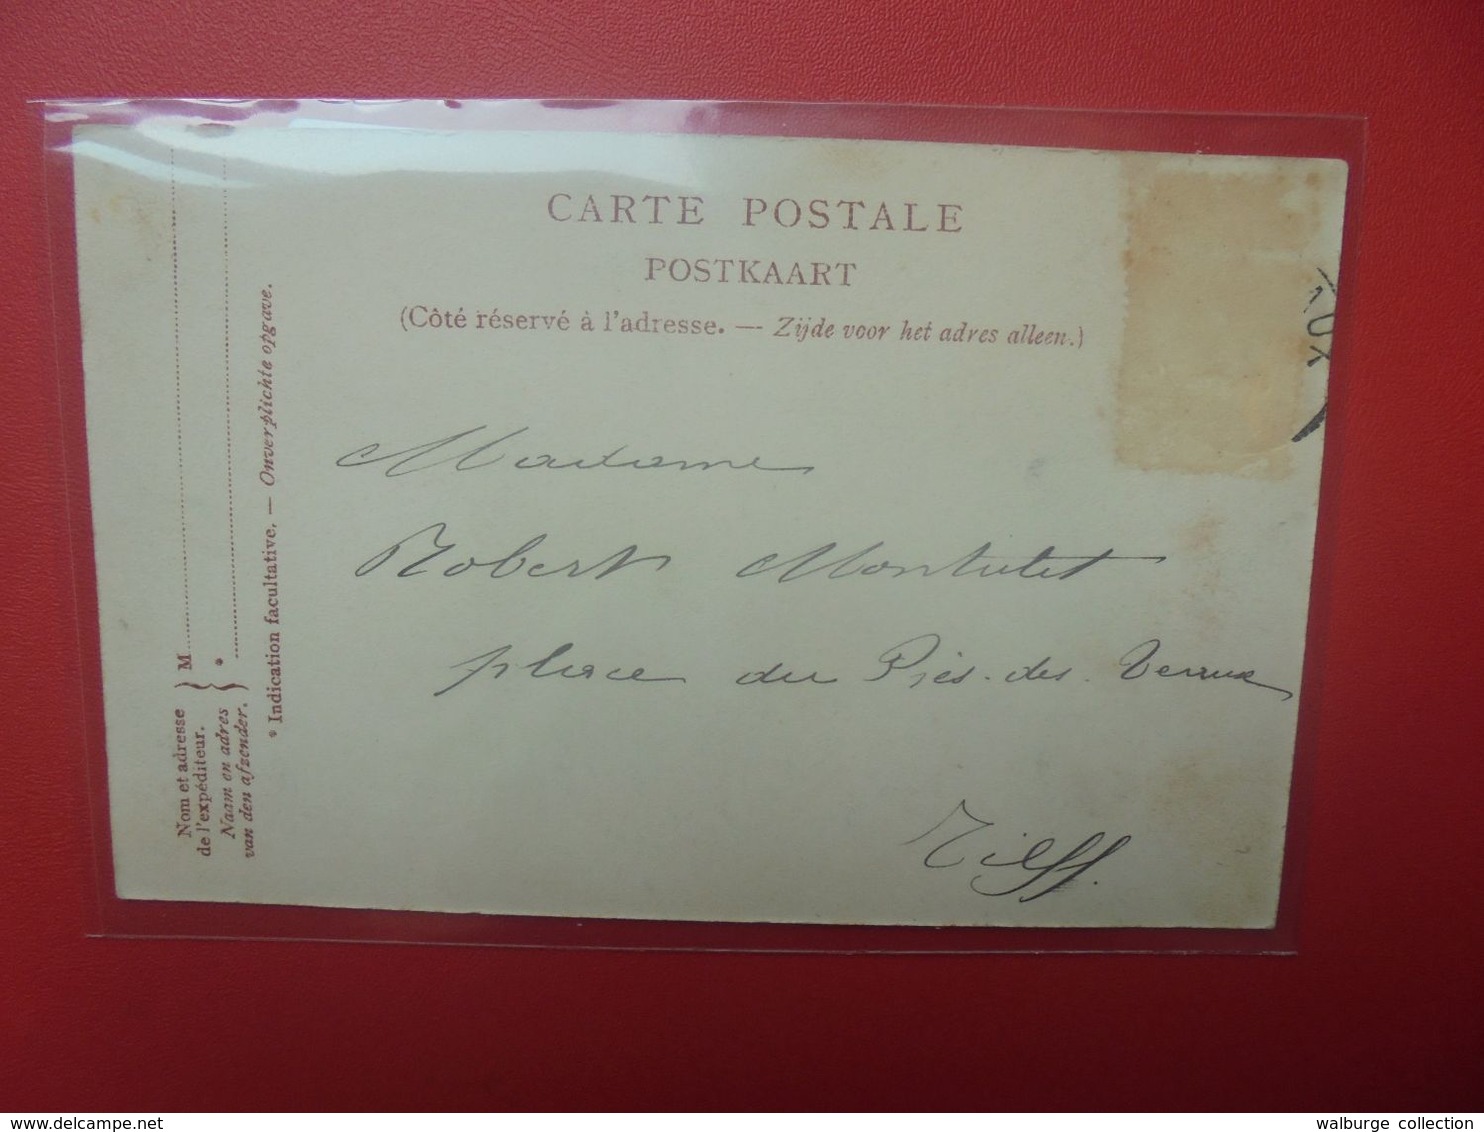 CARTE POSTALE
POSTKAART
(Côté réservé à l'adresse. — Zijde voor het adres alleen.)
Madame
Robert Montulet
place du Près-des-
Tilff.
Nom et adresse
de l'expéditeur. } M
Naam en adres
van den afzender. } *
* Indication facultative. — Onverplichte opgave.
AUX
www.delcampe.net
walburge collection